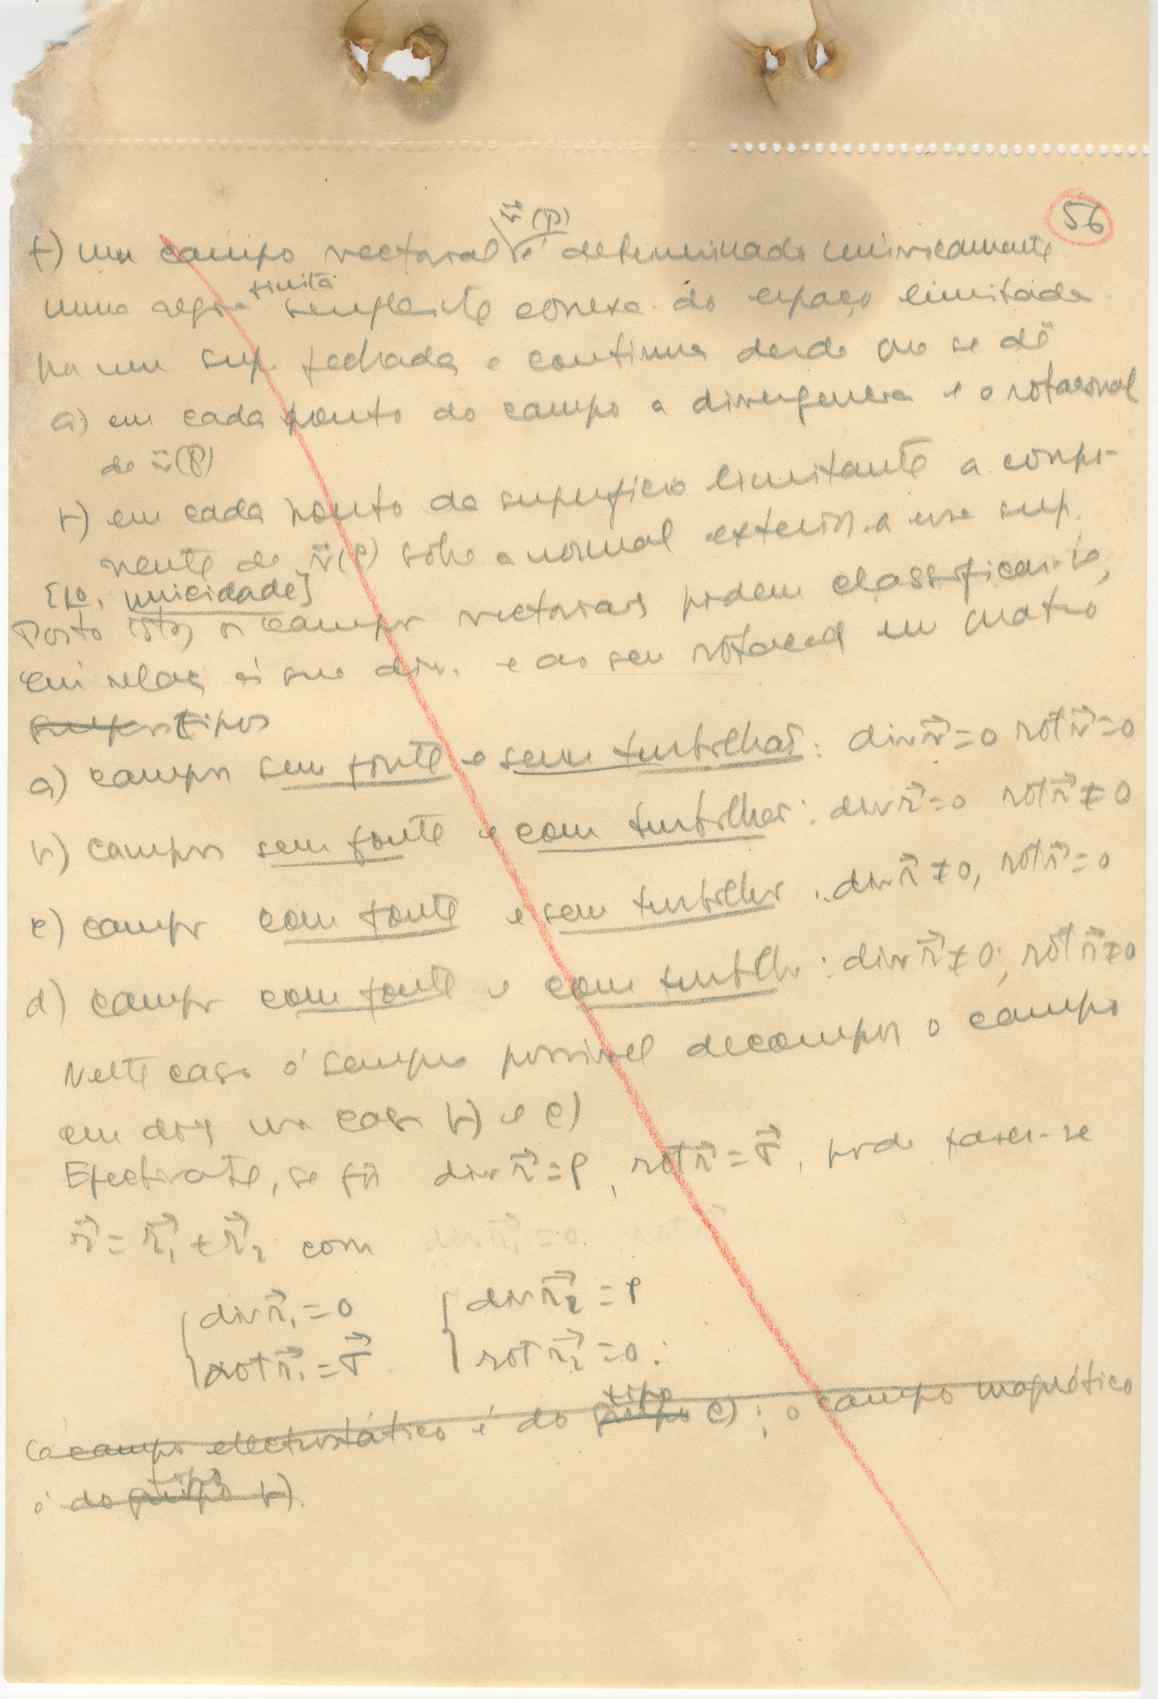 56
f) um campo vectorial \vec{v}(P) é determinado univocamente
numa região finita simplesmte conexa do espaço limitada
por um sup. fechada e continua desde que se dê
a) em cada ponto do campo a divergencia e o rotacional
de \vec{v}(P)
b) em cada ponto da superficie limitante a compo-
nente de \vec{v}(P) sobre a normal exterior a essa sup.
[to. unicidade]
Posto isto, os campos vectoriais podem classificar-se,
em relaç à sua div. e ao seu rotacional em quatro
tipos
a) campos sem fonte e sem turbilhão: div \vec{v}=0 rot \vec{v}=0
b) campos sem fonte e com turbilhão: div \vec{v}=0 rot \vec{v}≠0
c) campos com fonte e sem turbilhão: div \vec{v}≠0, rot \vec{v}=0
d) campos com fonte e com turbilhão: div \vec{v}≠0, rot \vec{v}≠0
Neste caso é sempre possivel decompor o campo
em dois nos casos b) e c)
Efectivate, se fôr div \vec{v}=ρ, rot \vec{v}=\vec{σ}, pode fazer-se
\vec{v}=\vec{v}₁+\vec{v}₂ com
div \vec{v}₁=0 div \vec{v}₂=ρ
rot \vec{v}₁=\vec{σ} rot \vec{v}₂=0.
campo electrostático é do tipo c); o campo magnético
é do tipo b).